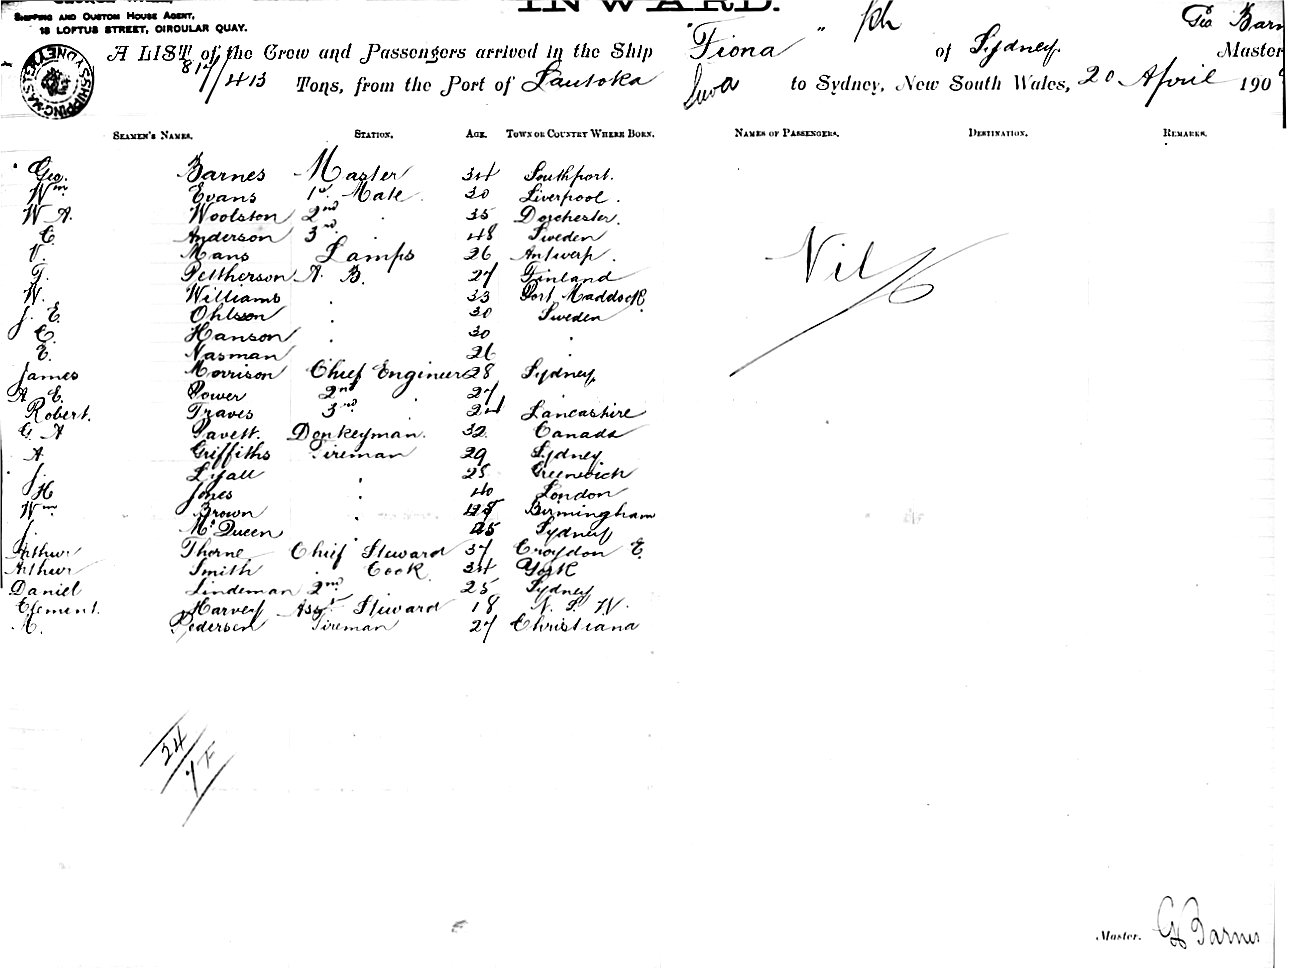 INWARD.
Shipping and Custom House Agent,
18 LOFTUS STREET, CIRCULAR QUAY.
SHIPPING MASTER SYDNEY
A LIST of the Crew and Passengers arrived in the Ship "Fiona" of Sydney. Geo Barn Master
Tons, from the Port of Lautoka Suva to Sydney, New South Wales, 20 April 190
Seamen's Names. Station. Age. Town or Country Where Born. Names of Passengers. Destination. Remarks.
Geo. Barnes Master 34 Southport.
Wm Evans 1st Mate. 30 Liverpool.
W A. Woolston 2nd 35 Dorchester.
C. Anderson 3rd 48 Sweden
V. Mans Lamps 26 Antwerp.
Nil
T. Pettherson A. B. 27 Finland
W. Williams 33 Port Maddock
J. E. Ohlson 30 Sweden
C. Hanson 30
E. Nasman 26
James Morrison Chief Engineer 28 Sydney
A E. Power 2nd 27
Robert. Traves 3rd 24 Lancashire
G A Pavett. Donkeyman. 32 Canada
A Griffiths Fireman 29 Sydney
J. Lyall 25 Greenwich
H Jones 40 London
Wm Brown Birmingham
J. McQueen 45 Sydney
Arthur Thorne Chief Steward 37 Croydon E.
Arthur Smith Cook 34 York
Daniel Lindeman 2nd 25 Sydney
Clement. Harvey Asst Steward 18 N. S. W.
Pedersen Fireman 27 Christiana
24
Master. G Barnes